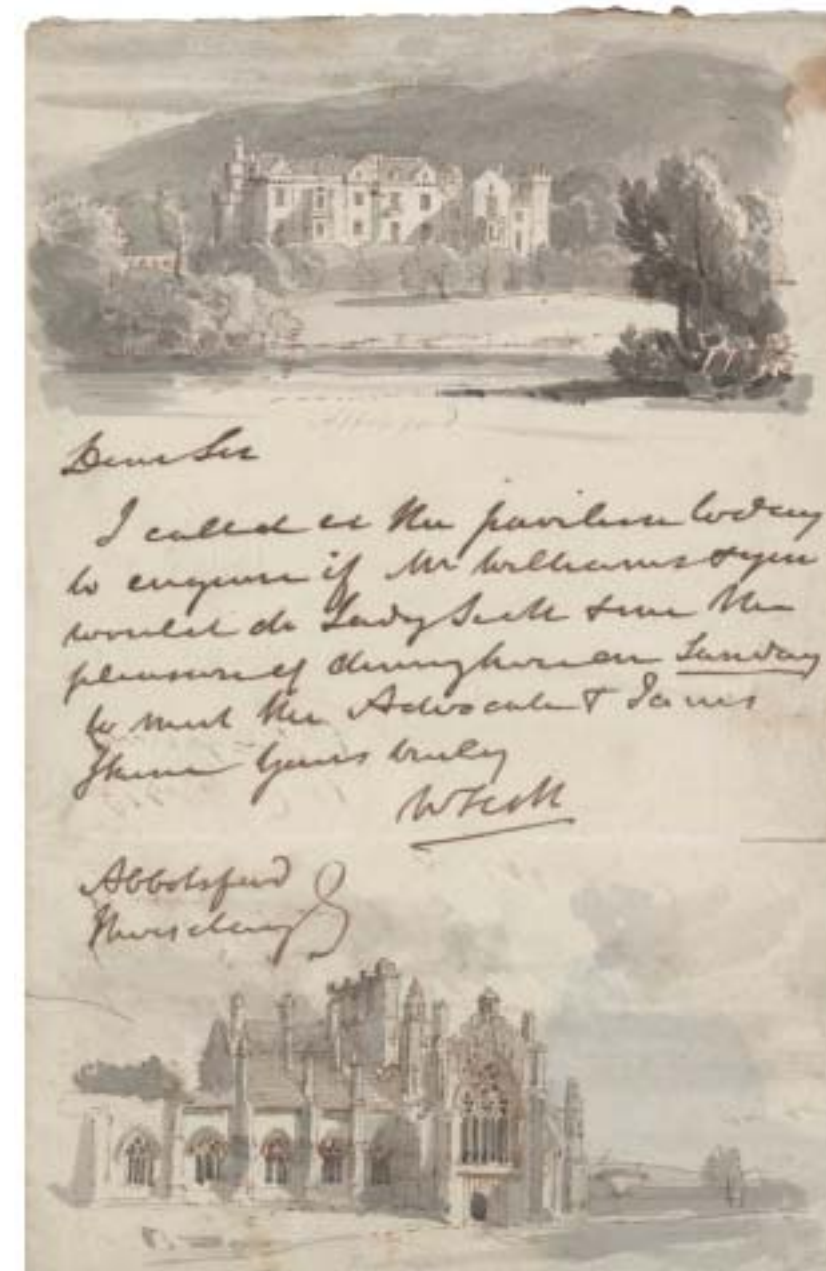 Abbotsford
Dear Sir
I called at the pavilion today
to enquire if Mr Williams & you
would do Lady Scott & me the
pleasure of dining here on Sunday
to meet the Advocate & James
Skene Yours truly
W Scott
Abbotsford
Thursday